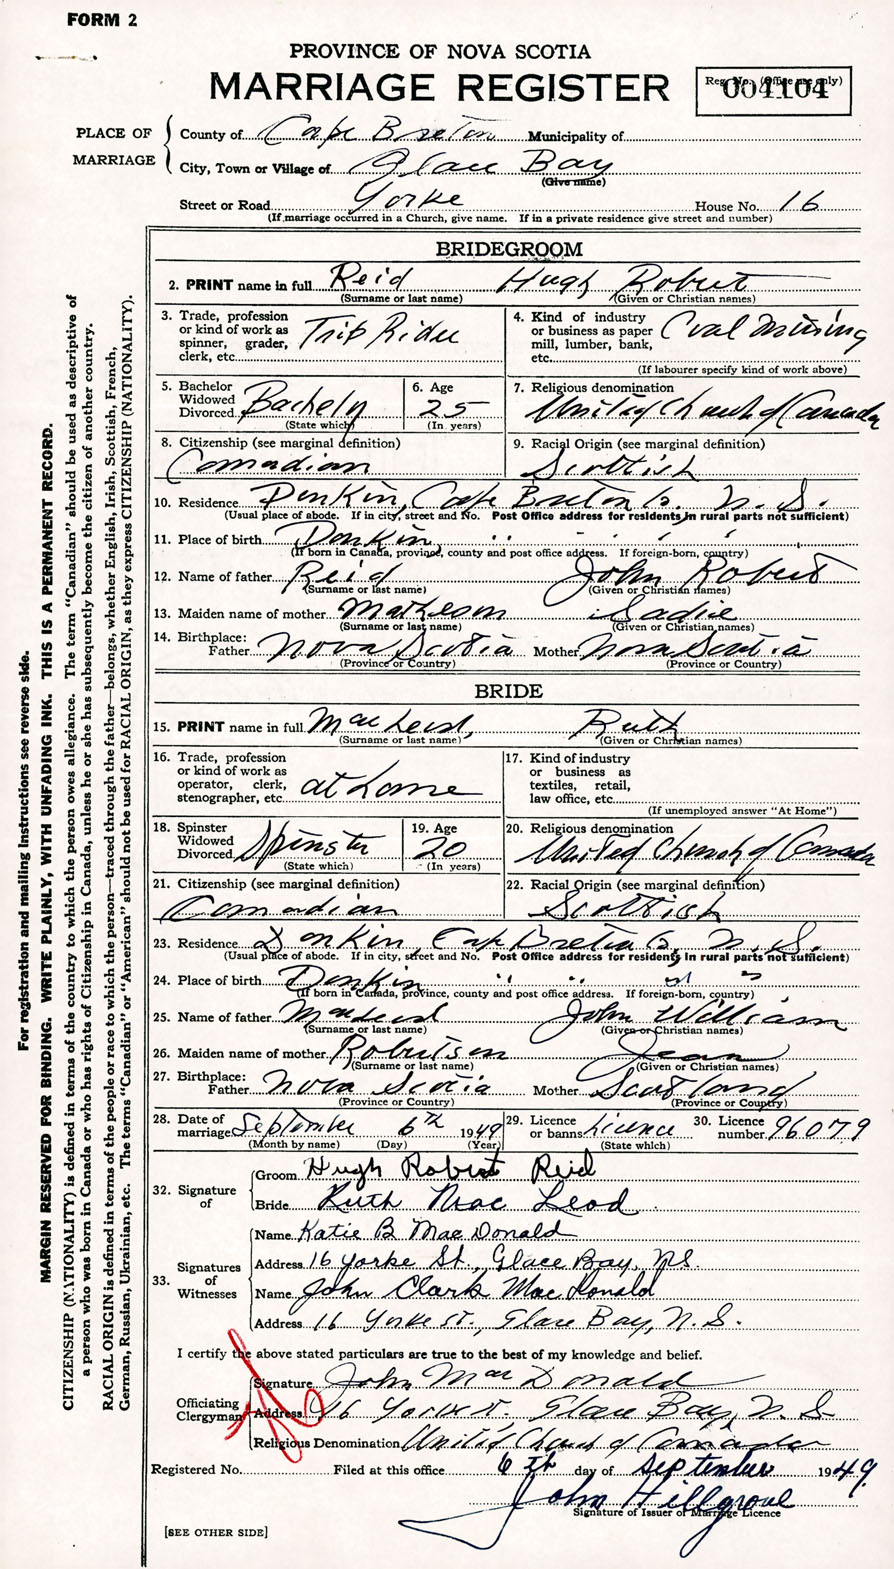 FORM 2
PROVINCE OF NOVA SCOTIA
MARRIAGE REGISTER
Reg. No. (Office use only)
004104
PLACE OF MARRIAGE
County of Cape Breton Municipality of
City, Town or Village of Glace Bay
(Give name)
Street or Road Yorke House No. 16
(If marriage occurred in a Church, give name. If in a private residence give street and number)
BRIDEGROOM
2. PRINT name in full Reid Hugh Robert
(Surname or last name) (Given or Christian names)
3. Trade, profession or kind of work as spinner, grader, clerk, etc. Trip Rider
4. Kind of industry or business as paper mill, lumber, bank, etc. Coal Mining
(If labourer specify kind of work above)
5. Bachelor Widowed Divorced Bachelor
(State which)
6. Age 25
(In years)
7. Religious denomination
United Church of Canada
8. Citizenship (see marginal definition)
Canadian
9. Racial Origin (see marginal definition)
Scottish
10. Residence Donkin, Cape Breton Co. N. S.
(Usual place of abode. If in city, street and No. Post Office address for residents in rural parts not sufficient)
11. Place of birth Donkin " " " "
(If born in Canada, province, county and post office address. If foreign-born, country)
12. Name of father Reid John Robert
(Surname or last name) (Given or Christian names)
13. Maiden name of mother Matheson Sadie
(Surname or last name) (Given or Christian names)
14. Birthplace:
Father Nova Scotia Mother Nova Scotia
(Province or Country) (Province or Country)
BRIDE
15. PRINT name in full MacLeod, Ruth
(Surname or last name) (Given or Christian names)
16. Trade, profession or kind of work as operator, clerk, stenographer, etc. at home
17. Kind of industry or business as textiles, retail, law office, etc.
(If unemployed answer "At Home")
18. Spinster Widowed Divorced Spinster
(State which)
19. Age 20
(In years)
20. Religious denomination
United Church of Canada
21. Citizenship (see marginal definition)
Canadian
22. Racial Origin (see marginal definition)
Scottish
23. Residence Donkin, Cape Breton Co. N. S.
(Usual place of abode. If in city, street and No. Post Office address for residents in rural parts not sufficient)
24. Place of birth Donkin " " " "
(If born in Canada, province, county and post office address. If foreign-born, country)
25. Name of father MacLeod John William
(Surname or last name) (Given or Christian names)
26. Maiden name of mother Robertson Jean
(Surname or last name) (Given or Christian names)
27. Birthplace:
Father Nova Scotia Mother Scotland
(Province or Country) (Province or Country)
28. Date of marriage September 6th 1949
(Month by name) (Day) (Year)
29. Licence or banns Licence
(State which)
30. Licence number 96079
32. Signature of
Groom Hugh Robert Reid
Bride Ruth MacLeod
33. Signatures of Witnesses
Name Katie B MacDonald
Address 16 Yorke St., Glace Bay, N.S.
Name John Clark MacDonald
Address 16 Yorke St., Glace Bay, N.S.
I certify the above stated particulars are true to the best of my knowledge and belief.
Officiating Clergyman
Signature John MacDonald
Address 16 Yorke St. Glace Bay, N. S
Religious Denomination United Church of Canada
Registered No. Filed at this office 6th day of September 1949.
John Hillgrove
Signature of Issuer of Marriage Licence
[SEE OTHER SIDE]
For registration and mailing instructions see reverse side.
MARGIN RESERVED FOR BINDING. WRITE PLAINLY, WITH UNFADING INK. THIS IS A PERMANENT RECORD.
CITIZENSHIP (NATIONALITY) is defined in terms of the country to which the person owes allegiance. The term "Canadian" should be used as descriptive of
a person who was born in Canada or who has rights of Citizenship in Canada, unless he or she has subsequently become the citizen of another country.
RACIAL ORIGIN is defined in terms of the people or race to which the person—traced through the father—belongs, whether English, Irish, Scottish, French,
German, Russian, Ukrainian, etc. The terms "Canadian" or "American" should not be used for RACIAL ORIGIN, as they express CITIZENSHIP (NATIONALITY).